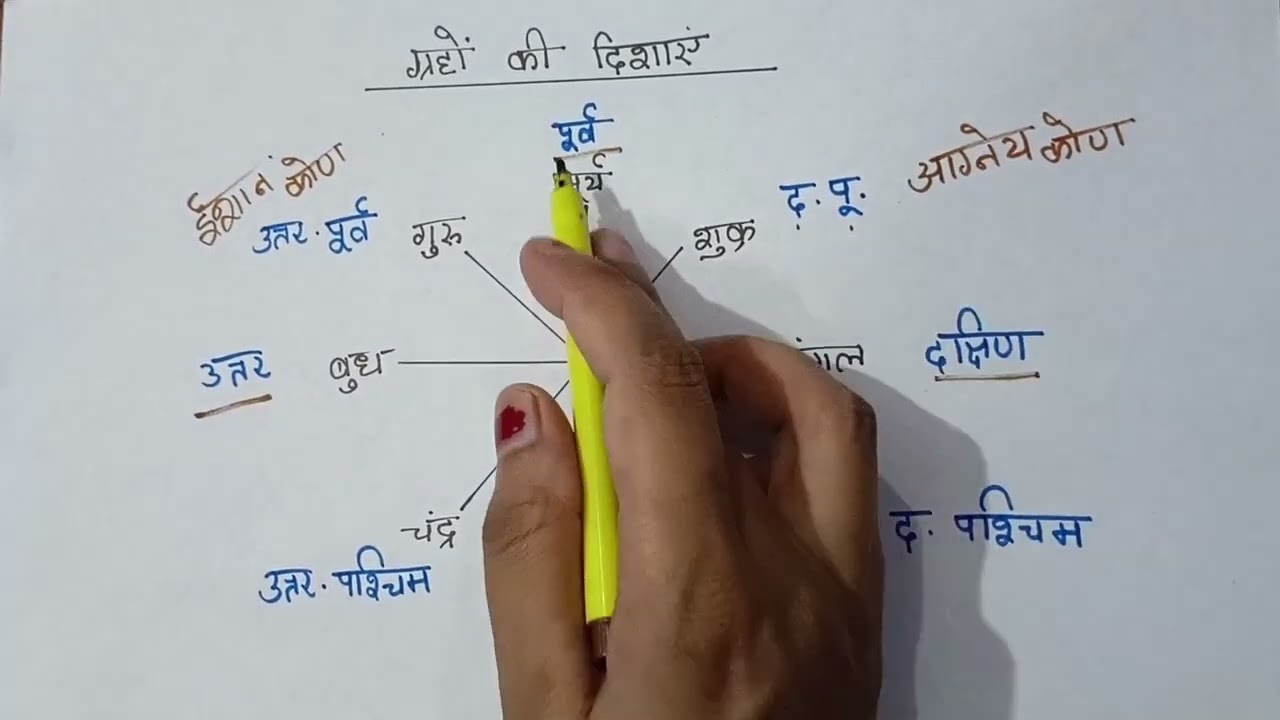 ग्रहों की दिशाएं
पूर्व
ईशान कोण
आग्नेय कोण
उत्तर. पूर्व
गुरु
शुक्र
द. पू.
उत्तर
बुध
दक्षिण
चंद्र
द. पश्चिम
उत्तर. पश्चिम